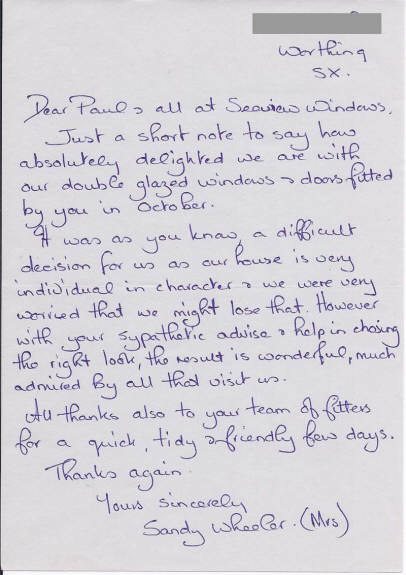 Worthing
SX.
Dear Paul & all at Seaview Windows,
Just a short note to say how
absolutely delighted we are with
our double glazed windows & doors fitted
by you in October.
It was as you know, a difficult
decision for us as our house is very
individual in character & we were very
worried that we might lose that. However
with your sypathetic advise & help in chosing
the right look, the result is wonderful, much
admired by all that visit us.
All thanks also to your team of fitters
for a quick, tidy & friendly few days.
Thanks again.
Yours sincerely
Sandy Wheeler. (Mrs)